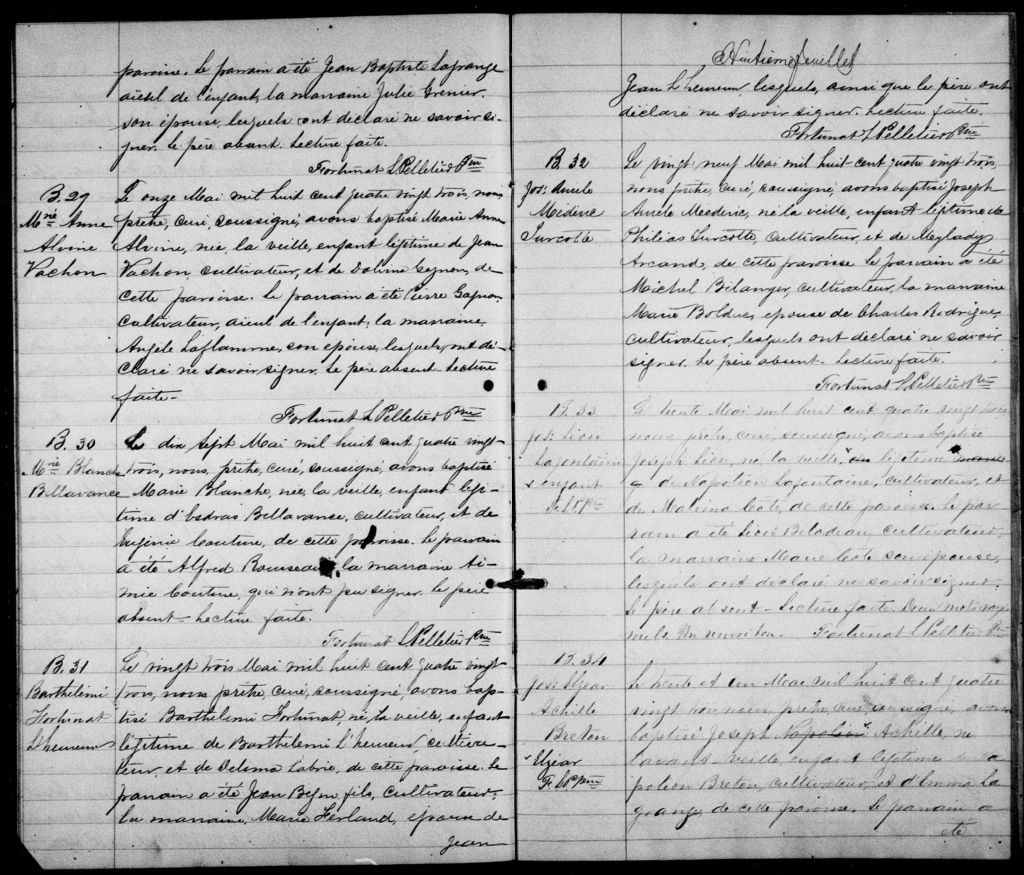 paroisse. Le parrain a été Jean Baptiste Lagrange
aïeul de l'enfant, la marraine Julie Grenier,
son épouse, lesquels ont déclaré ne savoir si-
gner. Le père absent. Lecture faite.
Fortunat L Pelletier Ptre
B. 29
Mrie Anne
Alvine
Vachon
Le onze Mai mil huit cent quatre vingt trois, nous
prêtre, curé, soussigné, avons baptisé Marie Anne
Alvine, née la veille, enfant légitime de Jean
Vachon, cultivateur, et de Gagnon, de
cette paroisse. Le parrain a été Pierre Gagnon
cultivateur, aïeul de l'enfant, la marraine,
Angèle Laflamme, son épouse, lesquels ont dé-
claré ne savoir signer. Le père absent. Lecture
faite.
Fortunat L Pelletier Ptre
B. 30
Mrie Blanche
Bellavance
Le dix sept Mai mil huit cent quatre vingt-
trois, nous, prêtre, curé, soussigné, avons baptisé
Marie Blanche, née, la veille, enfant légi-
time d'Esdras Bellavance, cultivateur, et de
Eugénie Couture, de cette paroisse. Le parrain
a été Alfred Rousseau, la marraine Ai-
mie Couture, qui n'ont pu signer. Le père
absent - Lecture faite.
Fortunat L Pelletier Ptre
B. 31
Barthelemi
Fortunat
L'heureux
Le vingt trois Mai mil huit cent quatre vingt-
trois, nous, prêtre, curé, soussigné, avons bap-
tisé Barthelemi Fortunat, né, la veille, enfant
légitime de Barthelemi l'heureux, cultiva-
teur, et de Delima Labrie, de cette paroisse. Le
parrain a été Jean Begin fils, cultivateur,
la marraine, Marie Ferland, épouse de
Jean
Huitième feuillet
Jean L'heureux, lesquels, ainsi que le père ont
déclaré ne savoir signer. Lecture faite.
Fortunat L Pelletier Ptre
B. 32
Jos: Aurele
Mederic
Turcotte
Le vingt neuf Mai mil huit cent quatre vingt trois,
nous prêtre, curé, soussigné, avons baptisé Joseph
Aurele Mederic, né la veille, enfant légitime de
Philias Turcotte, cultivateur, et de Meylady
Arcand, de cette paroisse. Le parrain a été
Michel Bélanger, cultivateur, la marraine
Marie Bolduc, épouse de Charles Rodrigue,
cultivateur, lesquels ont déclaré ne savoir
signer. Le père absent. Lecture faite.
Fortunat L Pelletier Ptre
B. 33
Jos: Léon
Lafontaine
x enfant
F. L P Ptre
Le trente Mai mil huit cent quatre vingt trois
nous, prêtre, curé, soussigné, avons baptisé
Joseph Léon, né la veille légitime
de Napoléon Lafontaine, cultivateur, et
de Malvina Coté, de cette paroisse. Le par-
rain a été Bilodeau, cultivateur,
la marraine Marie Coté son épouse,
lesquels ont déclaré ne savoir signer.
Le père absent - Lecture faite. Deux mots rayés
nuls. Un renvoi bon. Fortunat L Pelletier Ptre
B. 34
Jos: Elzear
Achille
Breton
x Elzear
F. L P Ptre
Le trente et un Mai mil huit cent quatre
vingt trois, nous, prêtre, curé, soussigné, avons
baptisé Joseph Napoléon x Achille, né
l'avant veille, enfant légitime de Na
poléon Breton, cultivateur, et d'Emma La
grange, de cette paroisse. Le parrain a
été